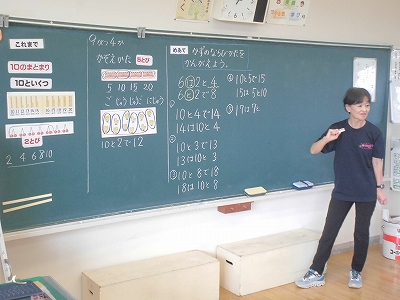 これまで
10のまとまり
10といくつ
2とび
2 4 6 8 10
9がつ4か
かぞえかた
5とび
5 10 15 20
ご じゅう じゅうご にじゅう
10と2で12
めあて かずのならびかたを
かんがえよう。
6は2と4
6と2で8
① 10と4で14
14は10と4
② 10と3で13
13は10と3
③ 10と8で18
18は10と8
④ 10と5で15
15は5と10
⑤ 17は7と